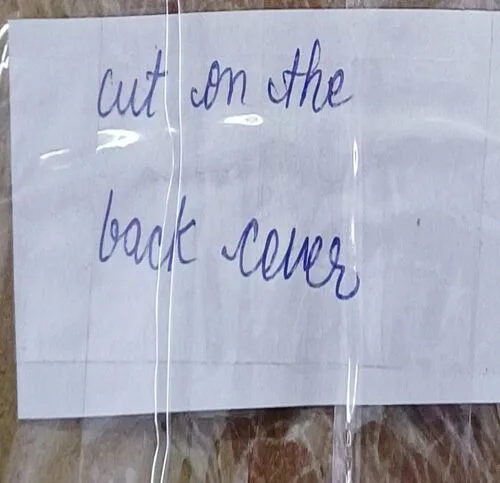 cut on the
back cover